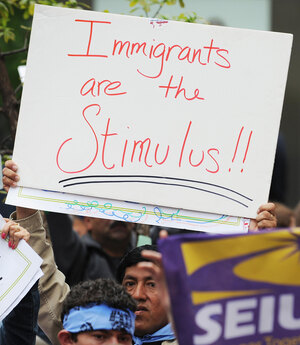 Immigrants
are the
Stimulus!!
SEIU